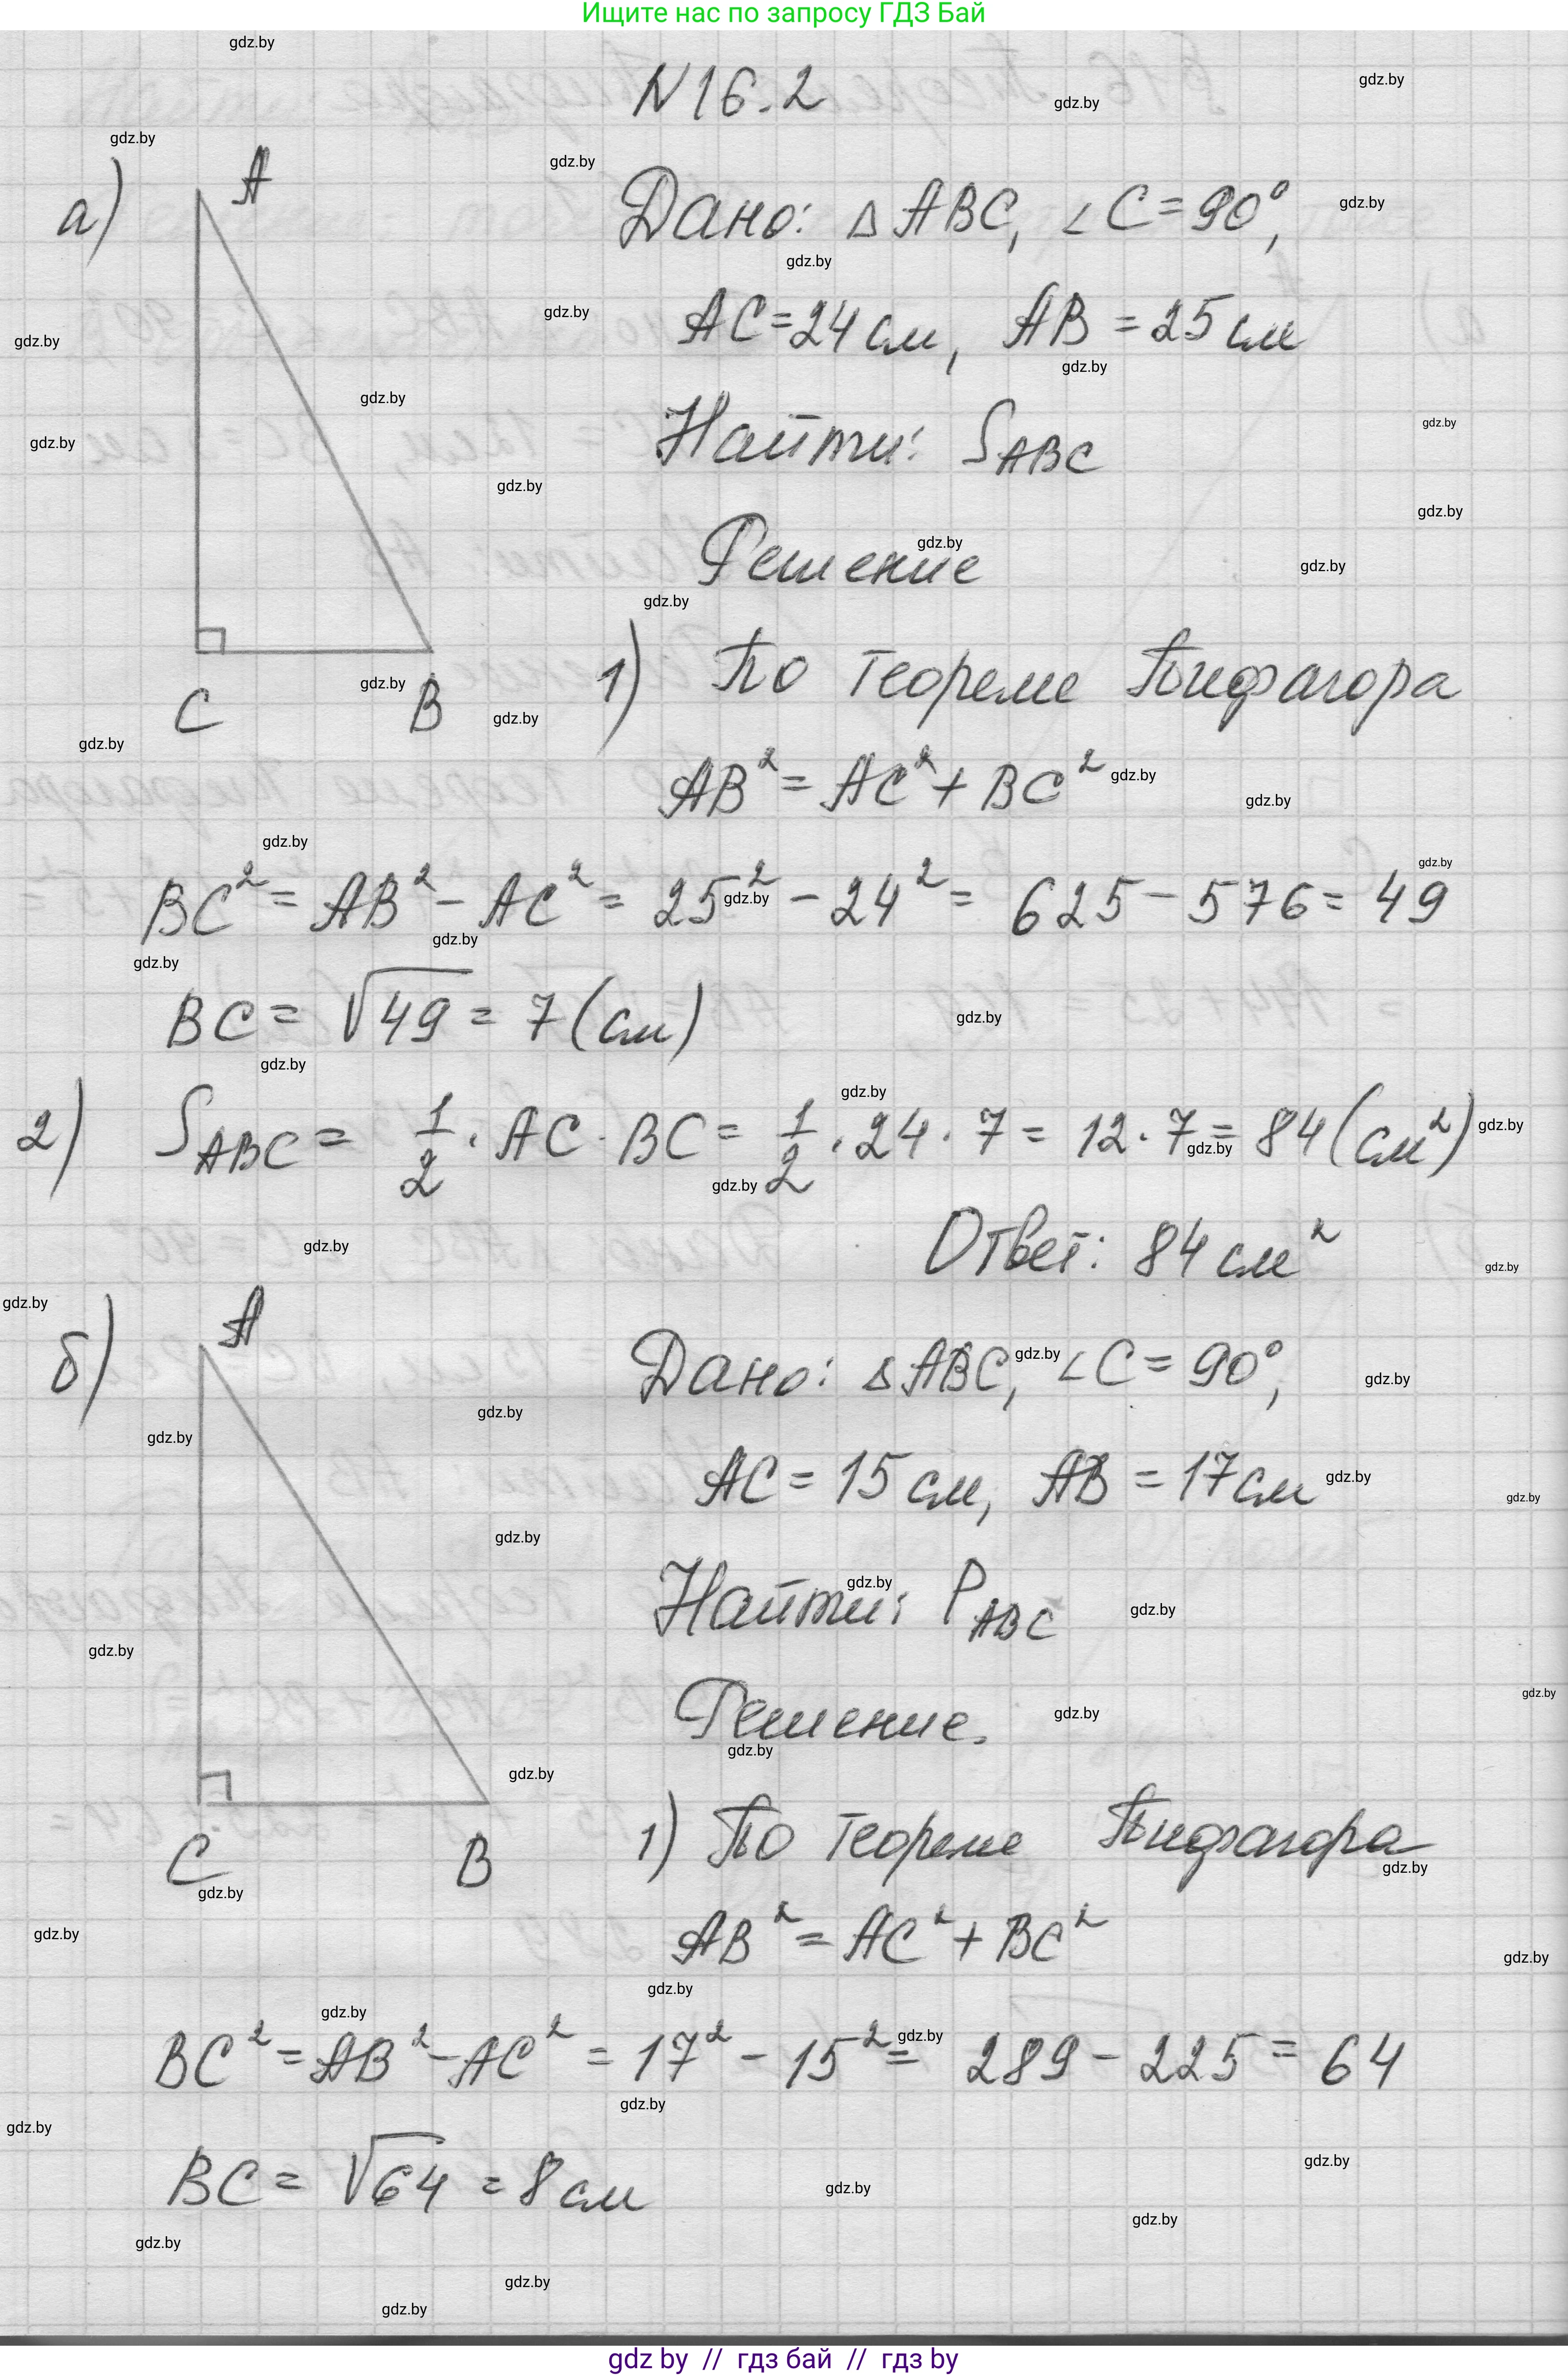 Ищите нас по запросу ГДЗ Бай
N16.2
а)
A
C
B
Дано: △ABC, ∠C=90°,
AC=24см, AB=25см
Найти: S_ABC
Решение
1) По теореме Пифагора
AB²=AC²+BC²
BC²=AB²-AC²=25²-24²=625-576=49
BC=√49=7(см)
2) S_ABC=1/2·AC·BC=1/2·24·7=12·7=84(см²)
Ответ: 84см²
б)
A
C
B
Дано: △ABC, ∠C=90°,
AC=15см, AB=17см
Найти: P_ABC
Решение.
1) По теореме Пифагора
AB²=AC²+BC²
BC²=AB²-AC²=17²-15²=289-225=64
BC=√64=8см
gdz.by
gdz by // гдз бай // гдз by